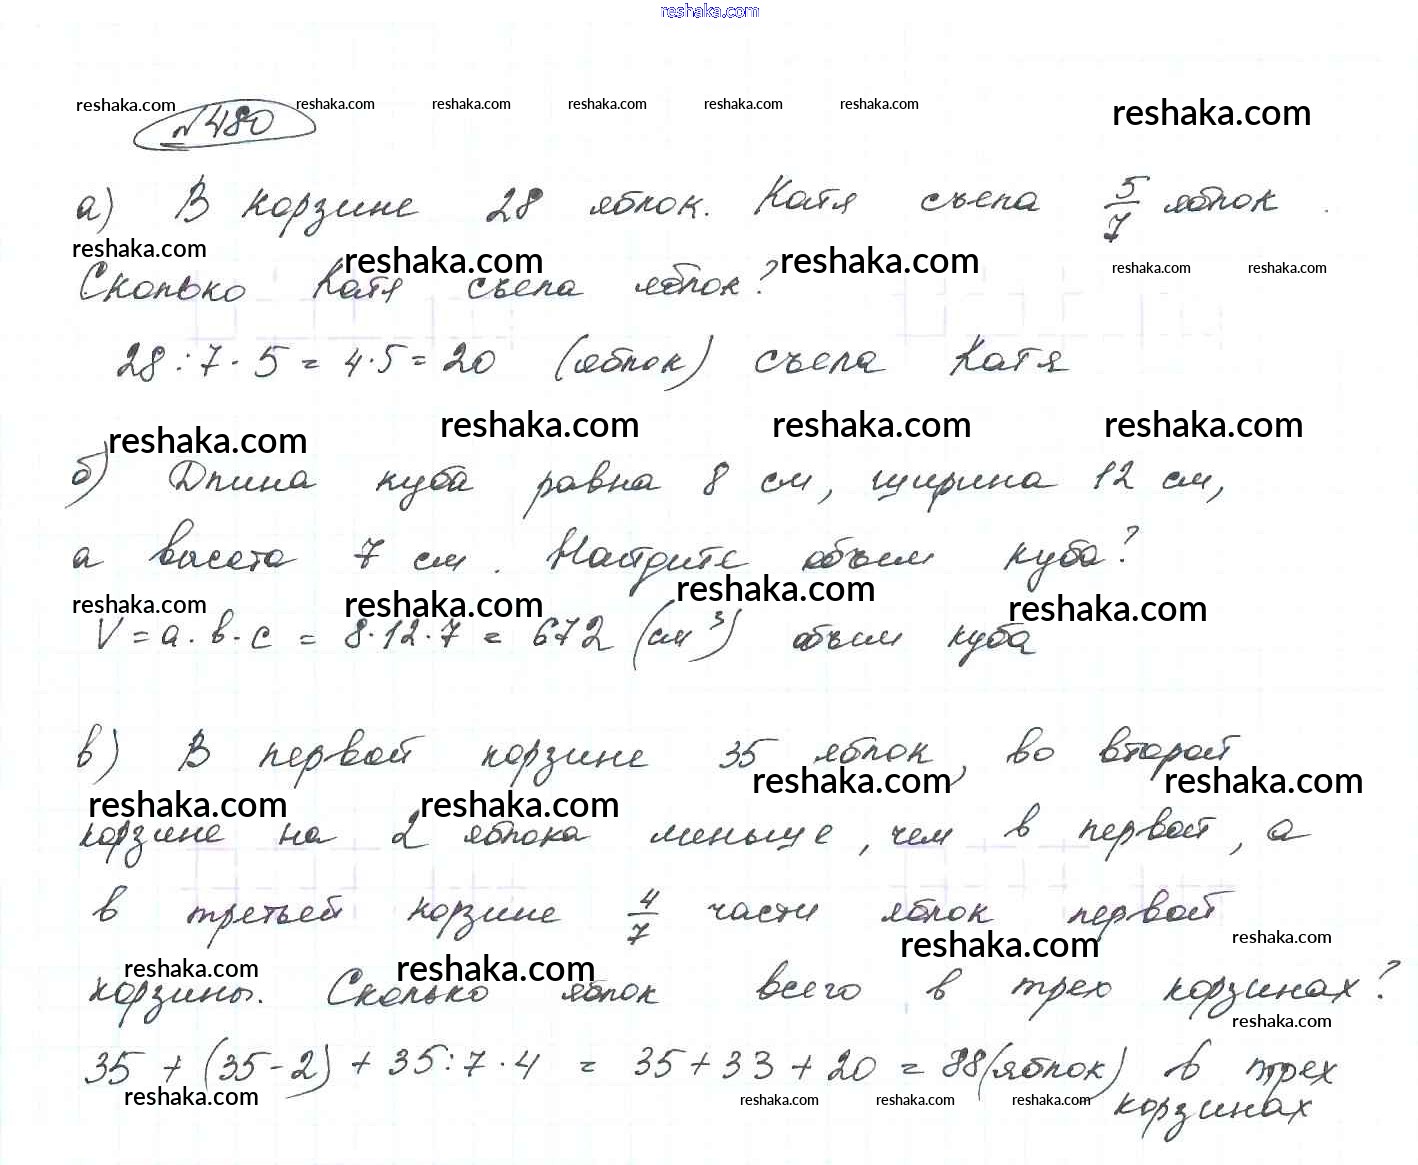 reshaka.com
reshaka.com reshaka.com reshaka.com reshaka.com reshaka.com reshaka.com reshaka.com
№480
а) В корзине 28 яблок. Катя съела 5/7 яблок.
reshaka.com reshaka.com reshaka.com reshaka.com reshaka.com
Сколько Катя съела яблок?
28:7·5=4·5=20 (яблок) съела Катя
reshaka.com reshaka.com reshaka.com reshaka.com
б) Длина куба равна 8 см, ширина 12 см,
а высота 7 см. Найдите объем куба?
reshaka.com reshaka.com reshaka.com reshaka.com
V=a·b·c = 8·12·7 = 672 (см³) объем куба
в) В первой корзине 35 яблок, во второй
reshaka.com reshaka.com reshaka.com reshaka.com
корзине на 2 яблока меньше, чем в первой, а
в третьей корзине 4/7 части яблок первой
reshaka.com reshaka.com
reshaka.com reshaka.com
корзины. Сколько яблок всего в трех корзинах?
reshaka.com
35 + (35-2) + 35:7·4 = 35+33+20 = 88(яблок) в трех
reshaka.com reshaka.com reshaka.com reshaka.com
корзинах